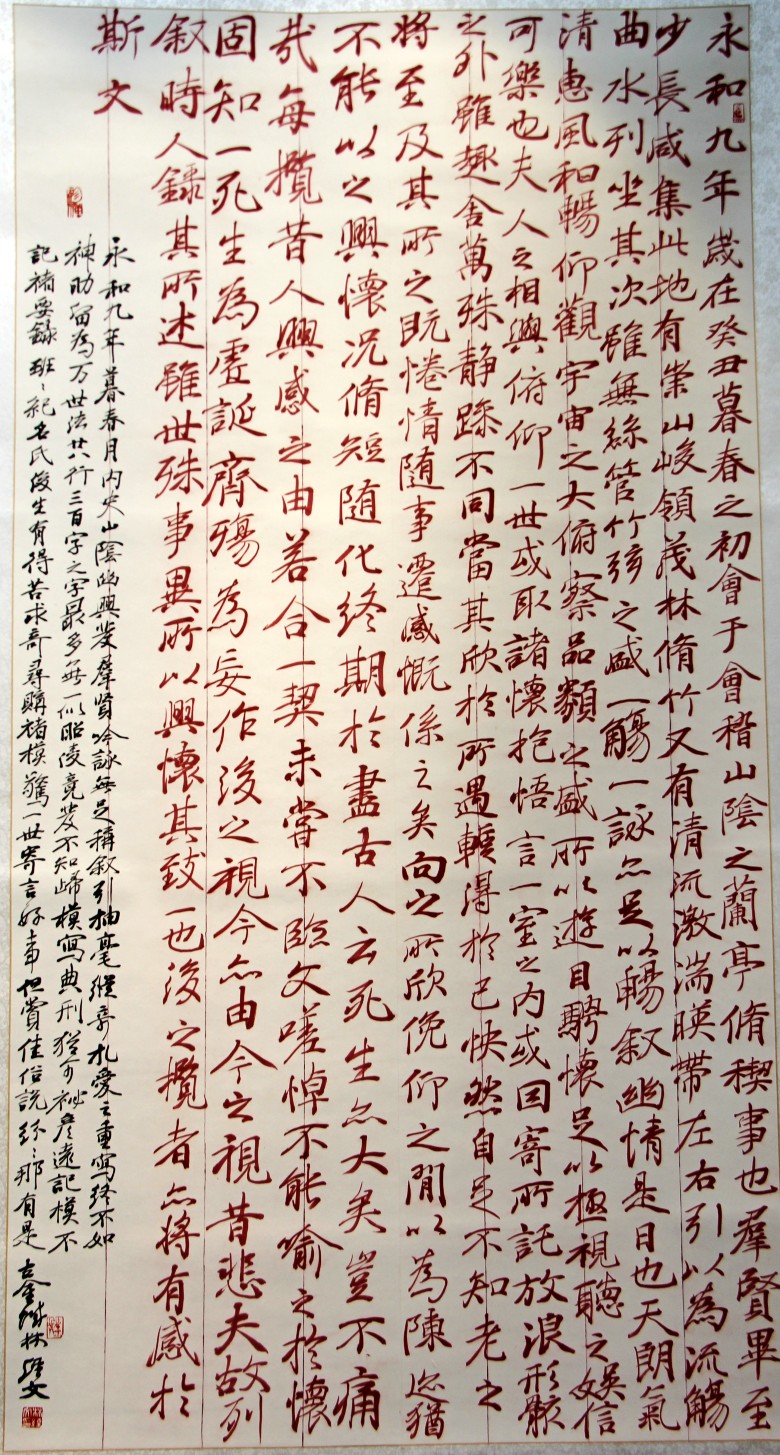 永和九年歲在癸丑暮春之初會于會稽山陰之蘭亭脩稧事也羣賢畢至
少長咸集此地有崇山峻領茂林脩竹又有清流激湍暎帶左右引以為流觴
曲水列坐其次雖無絲管竹弦之盛一觴一詠亦足以暢叙幽情是日也天朗氣
清惠風和暢仰觀宇宙之大俯察品類之盛所以遊目騁懷足以極視聽之娛信
可樂也夫人之相與俯仰一世或取諸懷抱悟言一室之内或因寄所託放浪形骸
之外雖趣舍萬殊静躁不同當其欣於所遇輒得於己怏然自足不知老之
將至及其所之既惓情隨事遷感慨係之矣向之所欣俛仰之閒以為陳迹猶
不能以之興懷況脩短隨化終期於盡古人云死生亦大矣豈不痛
哉每攬昔人興感之由若合一契未嘗不臨文嗟悼不能喻之於懷
固知一死生為虛誕齊殤為妄作後之視今亦由今之視昔悲夫故列
叙時人錄其所述雖世殊事異所以興懷其致一也後之攬者亦將有感於
斯文
永和九年暮春月内史山陰幽興發羣賢吟詠無足稱叙引抽毫縱奇札愛之重寫終不如
神助留為万世法廿八行三百字之字最多無一似昭陵竟發不知歸模寫典刑猶可秘彦遠記模不
記褚要錄班〻紀名氏後生有得苦求奇尋購褚模驚一世寄言好事但賞佳俗說紛〻那有是